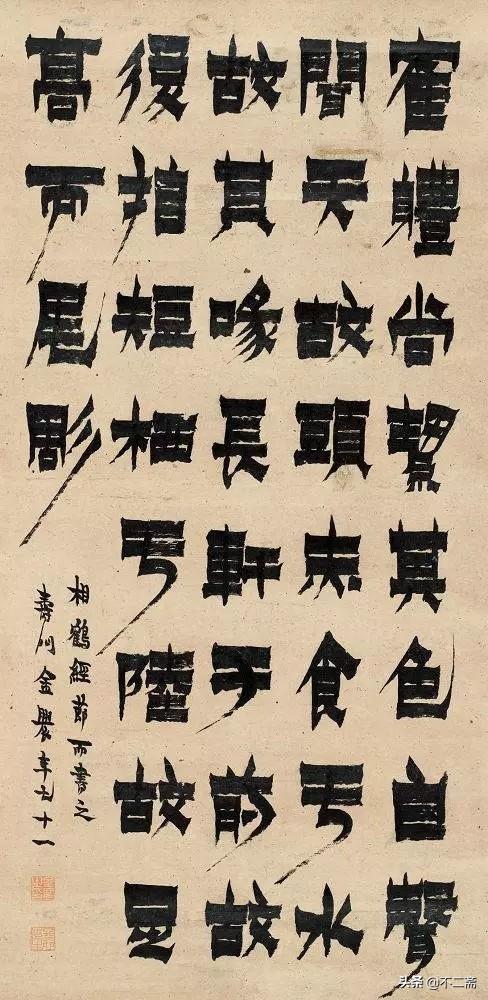 寉體尚絜其色白聲
聞天故頭赤食亏水
故其喙長軒于前故
後指短栖亏陸故足
高而尾彫
相鶴經節而書之
壽門金農年七十一
头条 @不二斋